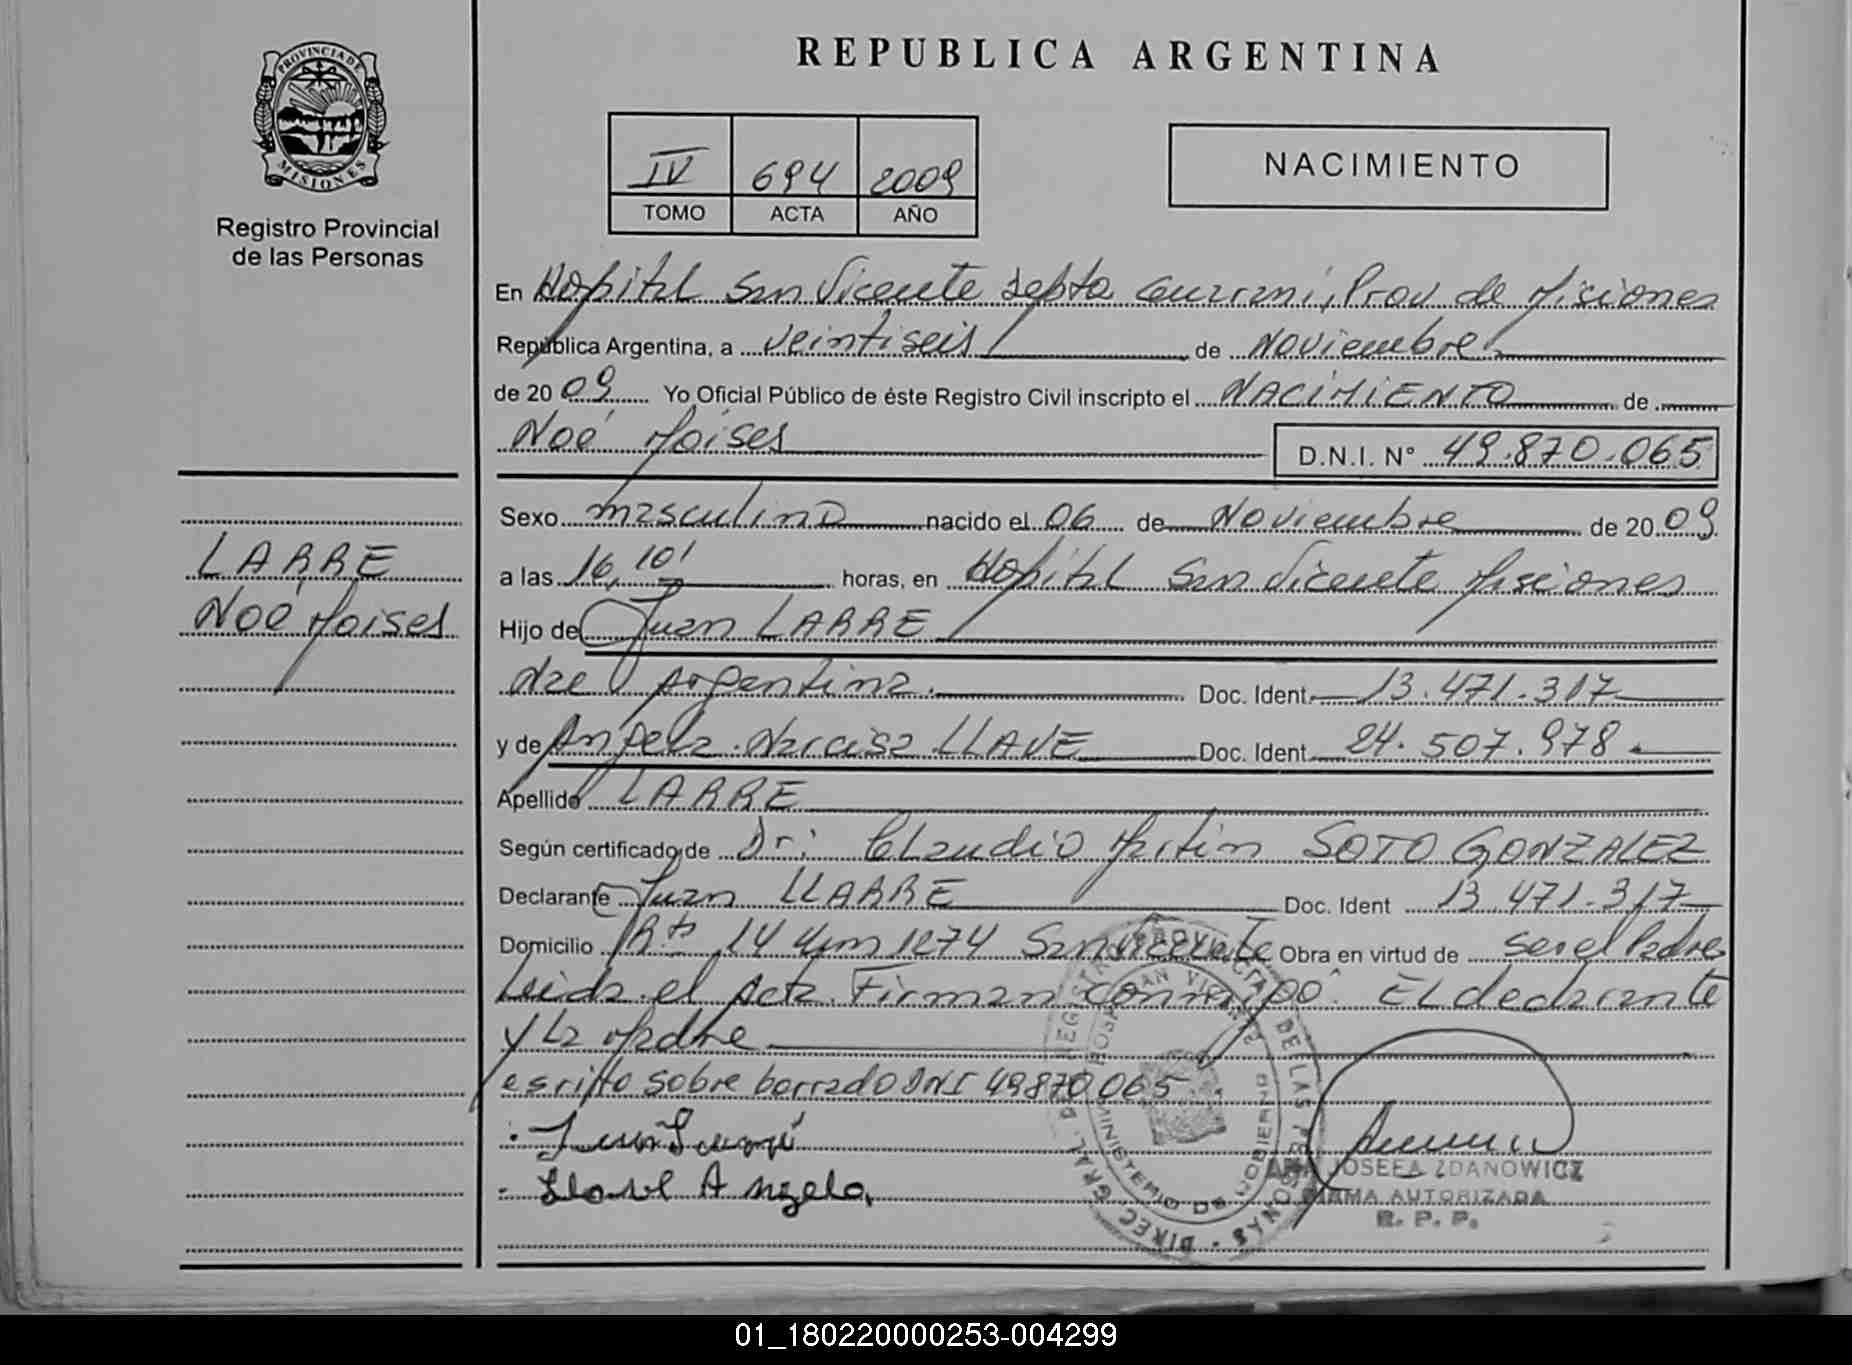 PROVINCIA DE
MISIONES
Registro Provincial
de las Personas
LARRE
Noé Moises
REPUBLICA ARGENTINA
IV 694 2009
TOMO ACTA AÑO
NACIMIENTO
En Hospital San Vicente Depto Guarani, Prov de Misiones
República Argentina, a veintiseis de Noviembre
de 2009 Yo Oficial Público de éste Registro Civil inscripto el NACIMIENTO de
Noé Moises D.N.I. N° 49.870.065
Sexo masculino nacido el 06 de Noviembre de 2009
a las 16,10' horas, en Hospital San Vicente Misiones
Hijo de Juan LARRE
Nac Argentina. Doc. Ident. 13.471.317
y de Angela Narcisa LLAVE Doc. Ident. 24.507.978
Apellido LARRE
Según certificado de Dr: Claudio Martin SOTO GONZALEZ
Declarante Juan LLARRE Doc. Ident 13.471.317
Domicilio Rta 14 Km 1274 San Vicente Obra en virtud de ser el Padre
Leida el Acta Firman conmigo. El declarante
y La Madre
escrito sobre borrado DNI 49870065
Llave Angela
DIREC. GRAL. DE REGISTRO PROVINCIAL DE LAS PERSONAS
HOSP. SAN VICENTE
MINISTERIO DE GOBIERNO
ANA JOSEFA ZDANOWICZ
FIRMA AUTORIZADA
R. P. P.
01_180220000253-004299